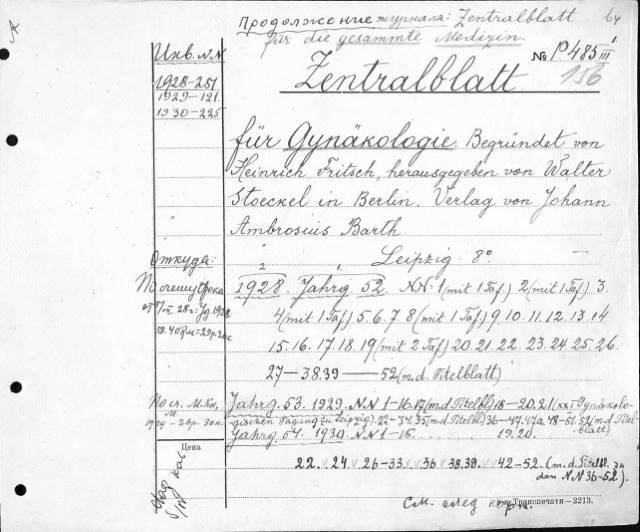 Продолжение журнала: Zentralblatt
für die gesammte Medizin.
Инв. N.N
1928-251
1929-121
1930-225
№ P485 III
156
Zentralblatt
für Gynäkologie. Begründet von
Heinrich Fritsch, herausgegeben von Walter
Stoeckel in Berlin. Verlag von Johann
Ambrosius Barth.
Откуда:
Leipzig. 8°
1928. Jahrg. 52. NN: 1 (mit 1 Taf) 2 (mit 1 Taf.) 3.
4 (mit 1 Taf.) 5. 6. 7. 8 (mit 1 Taf.) 9. 10. 11. 12. 13. 14
15. 16. 17. 18. 19 (mit 2 Taf) 20. 21. 22. 23. 24. 25. 26.
27—38.39—52 (m. d. Titelblatt)
Jahrg. 53. 1929. N.N 1-16.17 (m. d. Titelbl.) 18-20.21 (XXI Gynäkolo-
gischen Tagung zu Leipzig). 22-34.35 (m. d. Titelbl.) 36-47.47a.48-51.52 (m. d. Titel-
blatt)
Jahrg. 54. 1930. N.N 1-15 19.20.
Цена
22. 24. 26-33. 36 38.39. 42-52. (m. d. Titelbl. zu
den N.N 36-52.)
См. след карт.
Транспечати—2213.